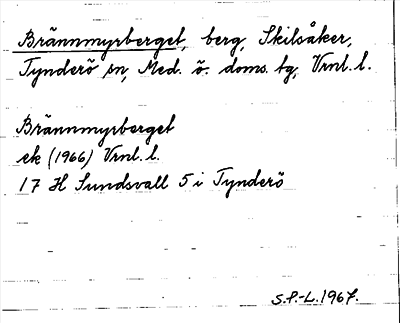 Brännmyrberget, berg, Skilsåker,
Tynderö sn, Med. ö. doms. tg, Vrnl. l.
Brännmyrberget
ek (1966) Vrnl. l.
17 H Sundsvall 5 i Tynderö
S.P.-L. 1967.